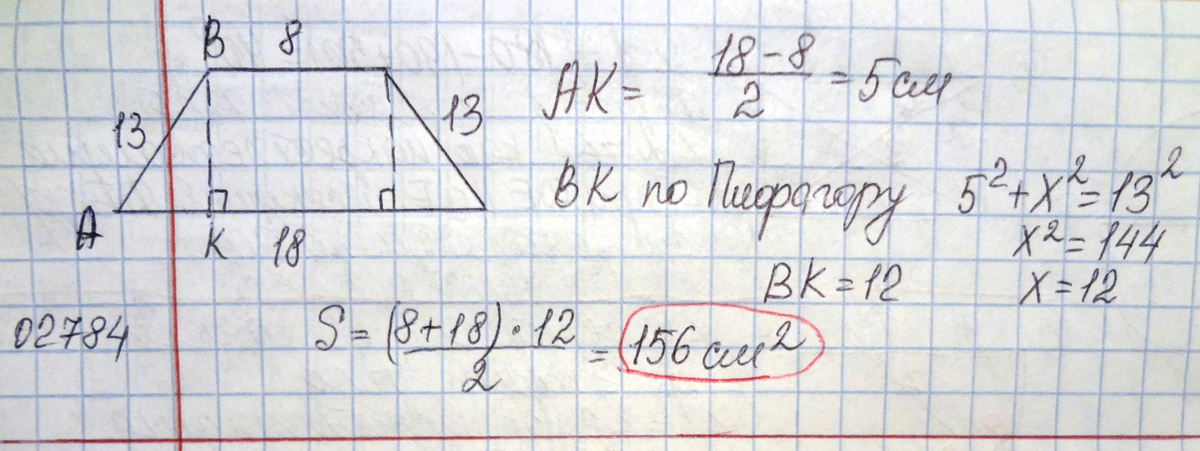 B 8
13 13
A K 18
AK = (18 - 8)/2 = 5 см
BK по Пифагору 5² + x² = 13²
x² = 144
BK = 12 x = 12
02784 S = (8 + 18) · 12/2 = 156 см²